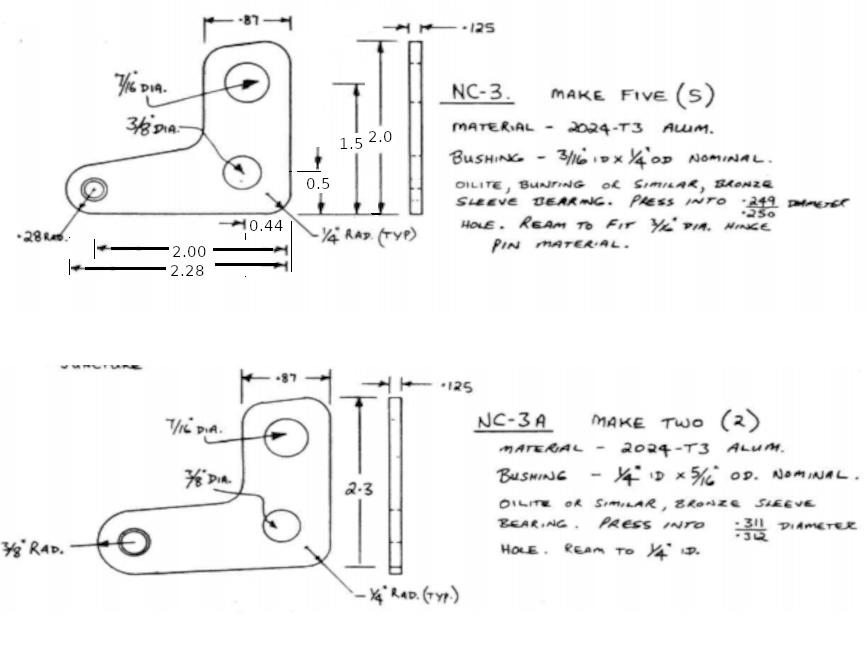 .87
.125
7/16" DIA.
3/8" DIA.
1.5
2.0
0.5
.28 RAD.
0.44
1/4" RAD. (TYP)
2.00
2.28
NC-3. MAKE FIVE (5)
MATERIAL - 2024-T3 ALUM.
BUSHING - 3/16" ID X 1/4" OD NOMINAL.
OILITE, BUNTING OR SIMILAR, BRONZE
SLEEVE BEARING. PRESS INTO .249/.250 DIAMETER
HOLE. REAM TO FIT 3/16" DIA. HINGE
PIN MATERIAL.
.87
.125
7/16" DIA.
3/8" DIA.
2.3
3/8" RAD.
1/4" RAD. (TYP.)
NC-3A MAKE TWO (2)
MATERIAL - 2024-T3 ALUM.
BUSHING - 1/4" ID X 5/16" OD. NOMINAL.
OILITE OR SIMILAR, BRONZE SLEEVE
BEARING. PRESS INTO .311/.312 DIAMETER
HOLE. REAM TO 1/4" ID.